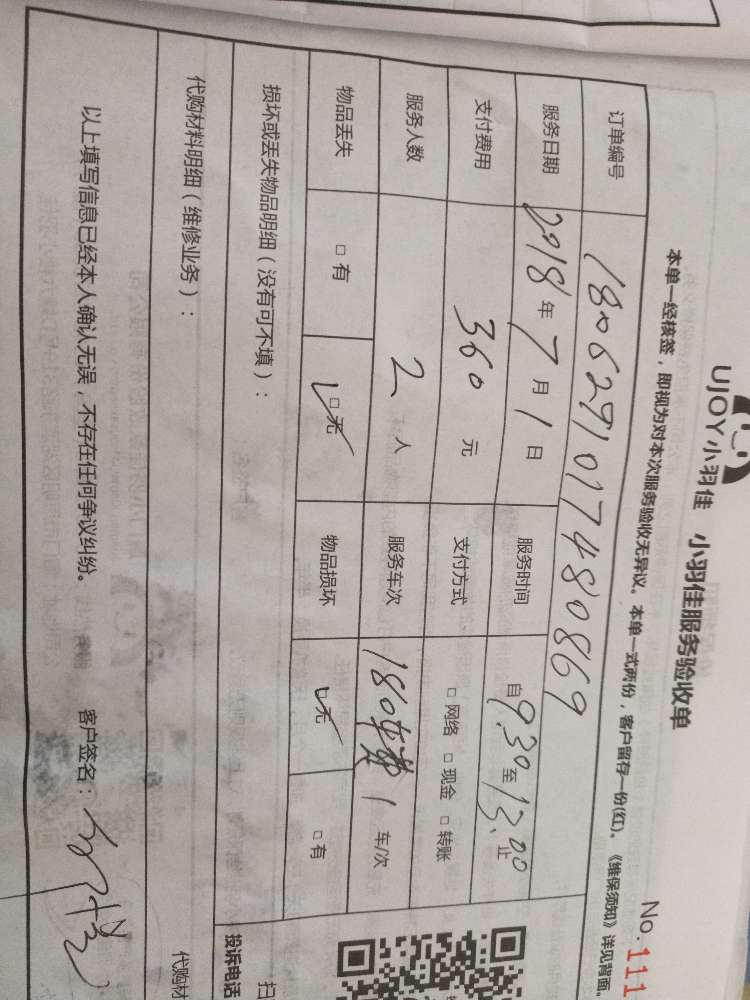 UJOY小羽佳 小羽佳服务验收单
No.111
本单一经核签，即视为对本次服务验收无异议。本单一式两份，客户留存一份(红)。《维保须知》详见背面。
订单编号 180629101748 0869
服务日期 2018年7月1日 服务时间 自9.30至13.00止
支付费用 360元 支付方式 □网络 □现金 □转账
服务人数 2人 服务车次 180 1车/次
物品丢失 □有 □无 物品损坏 □无 □有
损坏或丢失物品明细（没有可不填）：
投诉电话
扫
代购材料明细（维修业务）：
代购材
以上填写信息已经本人确认无误，不存在任何争议纠纷。 客户签名：